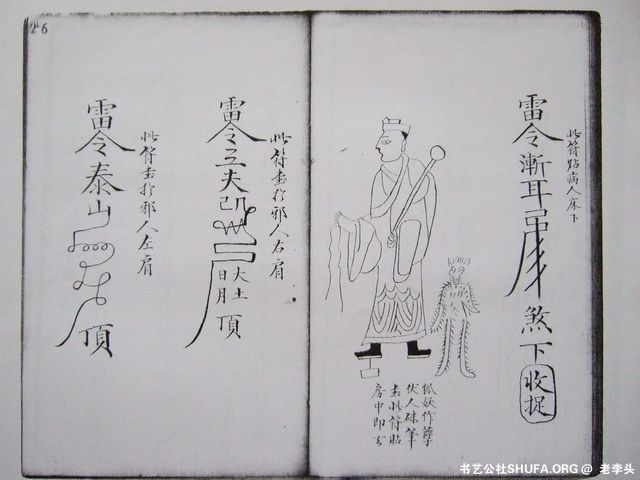 此符貼病人床下
雷令漸耳
煞下
收捉
狐妖作孽
伏人硃筆
畫此符貼
房中即去
此符畫於邪人右肩
雷令
夫
大土
日月
頂
此符畫於邪人左肩
雷令泰山
頂
26
书艺公社SHUFA.ORG @ 老李头